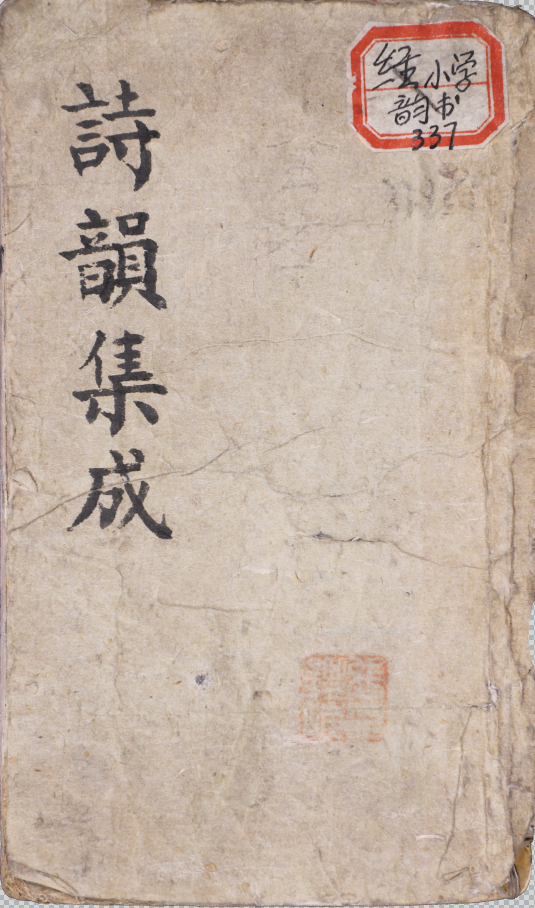 詩韻集成
经 小学
韵书
337